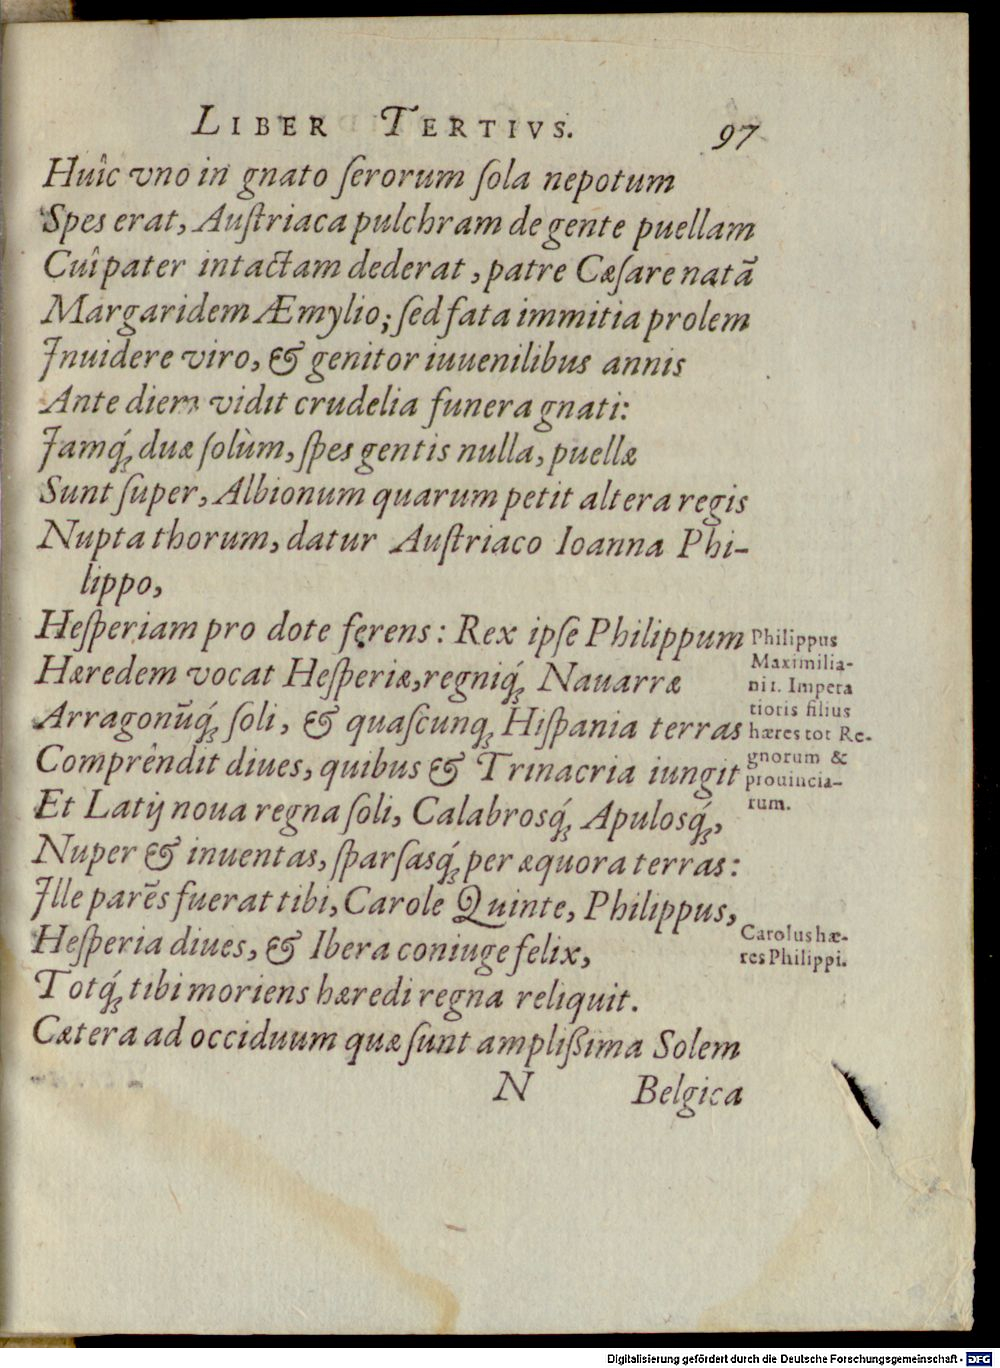 LIBER TERTIVS. 97
Huîc vno in gnato ſerorum ſola nepotum
Spes erat, Auſtriaca pulchram de gente puellam
Cuî pater intactam dederat, patre Cæſare natā
Margaridem Æmylio; ſed fata immitia prolem
Inuidere viro, & genitor iuuenilibus annis
Ante diem vidit crudelia funera gnati:
Iamq́; duæ ſolùm, ſpes gentis nulla, puellæ
Sunt ſuper, Albionum quarum petit altera regis
Nupta thorum, datur Auſtriaco Ioanna Phi-
lippo,
Heſperiam pro dote ferens: Rex ipſe Philippum
Hæredem vocat Heſperiæ, regniq́; Nauarræ
Arragonūq́; ſoli, & quaſcunq; Hiſpania terras
Comprêndit diues, quibus & Trinacria iungit
Et Latij noua regna ſoli, Calabroſq́; Apuloſq́;,
Nuper & inuentas, ſparſaſq́; per æquora terras:
Ille parēs fuerat tibi, Carole Quinte, Philippus,
Heſperia diues, & Ibera coniuge felix,
Totq́; tibi moriens hæredi regna reliquit.
Cætera ad occiduum quæ ſunt ampliſſima Solem
N Belgica
Philippus
Maximilia-
nit. Impera
tioris filius
hæres tot Re-
gnorum &
prouincia-
rum.
Carolus hæ-
res Philippi.
Digitalisierung gefördert durch die Deutsche Forschungsgemeinschaft - DFG